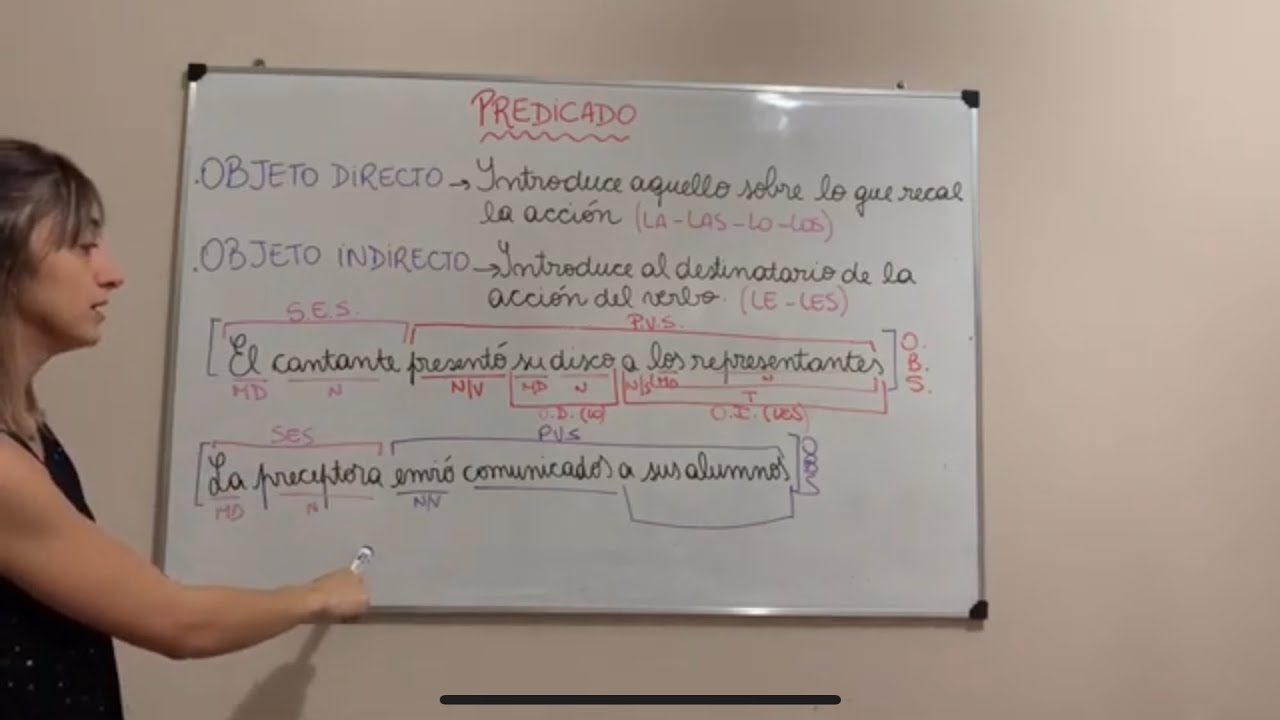 PREDICADO
.OBJETO DIRECTO → Introduce aquello sobre lo que recae
la acción (LA-LAS-LO-LOS)
.OBJETO INDIRECTO → Introduce al destinatario de la
acción del verbo. (LE-LES)
S.E.S. P.V.S.
[El cantante presentó su disco a los representantes] O.B.S.
MD N N/V MD N N/S MD N
T
O.D. (LO) O.I. (LES)
SES PVS
[La preceptora envió comunicados a sus alumnos]
MD N N/V